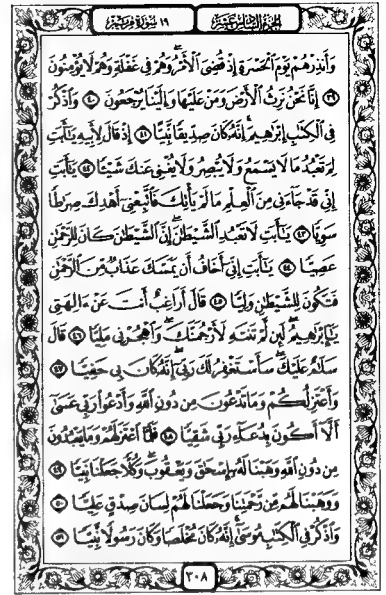 الجزء السادس عشر ١٩ سورة مريم
وَأَنذِرْهُمْ يَوْمَ الْحَسْرَةِ إِذْ قُضِيَ الْأَمْرُ وَهُمْ فِي غَفْلَةٍ وَهُمْ لَا يُؤْمِنُونَ
﴿٣٩﴾ إِنَّا نَحْنُ نَرِثُ الْأَرْضَ وَمَنْ عَلَيْهَا وَإِلَيْنَا يُرْجَعُونَ ﴿٤٠﴾ وَاذْكُرْ
فِي الْكِتَٰبِ إِبْرَٰهِيمَ إِنَّهُ كَانَ صِدِّيقًا نَّبِيًّا ﴿٤١﴾ إِذْ قَالَ لِأَبِيهِ يَٰأَبَتِ
لِمَ تَعْبُدُ مَا لَا يَسْمَعُ وَلَا يُبْصِرُ وَلَا يُغْنِي عَنكَ شَيْئًا ﴿٤٢﴾ يَٰأَبَتِ
إِنِّي قَدْ جَاءَنِي مِنَ الْعِلْمِ مَا لَمْ يَأْتِكَ فَاتَّبِعْنِي أَهْدِكَ صِرَٰطًا
سَوِيًّا ﴿٤٣﴾ يَٰأَبَتِ لَا تَعْبُدِ الشَّيْطَٰنَ إِنَّ الشَّيْطَٰنَ كَانَ لِلرَّحْمَٰنِ
عَصِيًّا ﴿٤٤﴾ يَٰأَبَتِ إِنِّي أَخَافُ أَن يَمَسَّكَ عَذَابٌ مِّنَ الرَّحْمَٰنِ
فَتَكُونَ لِلشَّيْطَٰنِ وَلِيًّا ﴿٤٥﴾ قَالَ أَرَاغِبٌ أَنتَ عَنْ ءَالِهَتِي
يَٰإِبْرَٰهِيمُ لَئِن لَّمْ تَنتَهِ لَأَرْجُمَنَّكَ وَاهْجُرْنِي مَلِيًّا ﴿٤٦﴾ قَالَ
سَلَٰمٌ عَلَيْكَ سَأَسْتَغْفِرُ لَكَ رَبِّي إِنَّهُ كَانَ بِي حَفِيًّا ﴿٤٧﴾
وَأَعْتَزِلُكُمْ وَمَا تَدْعُونَ مِن دُونِ اللَّهِ وَأَدْعُوا رَبِّي عَسَىٰ
أَلَّا أَكُونَ بِدُعَاءِ رَبِّي شَقِيًّا ﴿٤٨﴾ فَلَمَّا اعْتَزَلَهُمْ وَمَا يَعْبُدُونَ
مِن دُونِ اللَّهِ وَهَبْنَا لَهُ إِسْحَٰقَ وَيَعْقُوبَ وَكُلًّا جَعَلْنَا نَبِيًّا ﴿٤٩﴾
وَوَهَبْنَا لَهُم مِّن رَّحْمَتِنَا وَجَعَلْنَا لَهُمْ لِسَانَ صِدْقٍ عَلِيًّا ﴿٥٠﴾
وَاذْكُرْ فِي الْكِتَٰبِ مُوسَىٰ إِنَّهُ كَانَ مُخْلَصًا وَكَانَ رَسُولًا نَّبِيًّا ﴿٥١﴾
٣٠٨